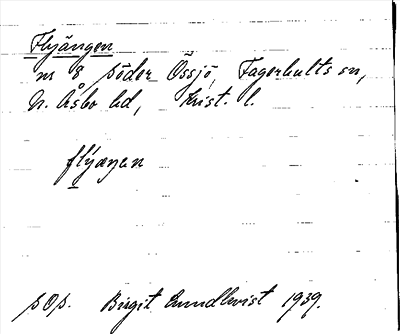 Flyängen
nr 8 Söder Össjö, Fagerhults sn,
N. Åsbo hd, Krist. l.
flýæŋen
sOp. Birgit Lundkvist 1939.